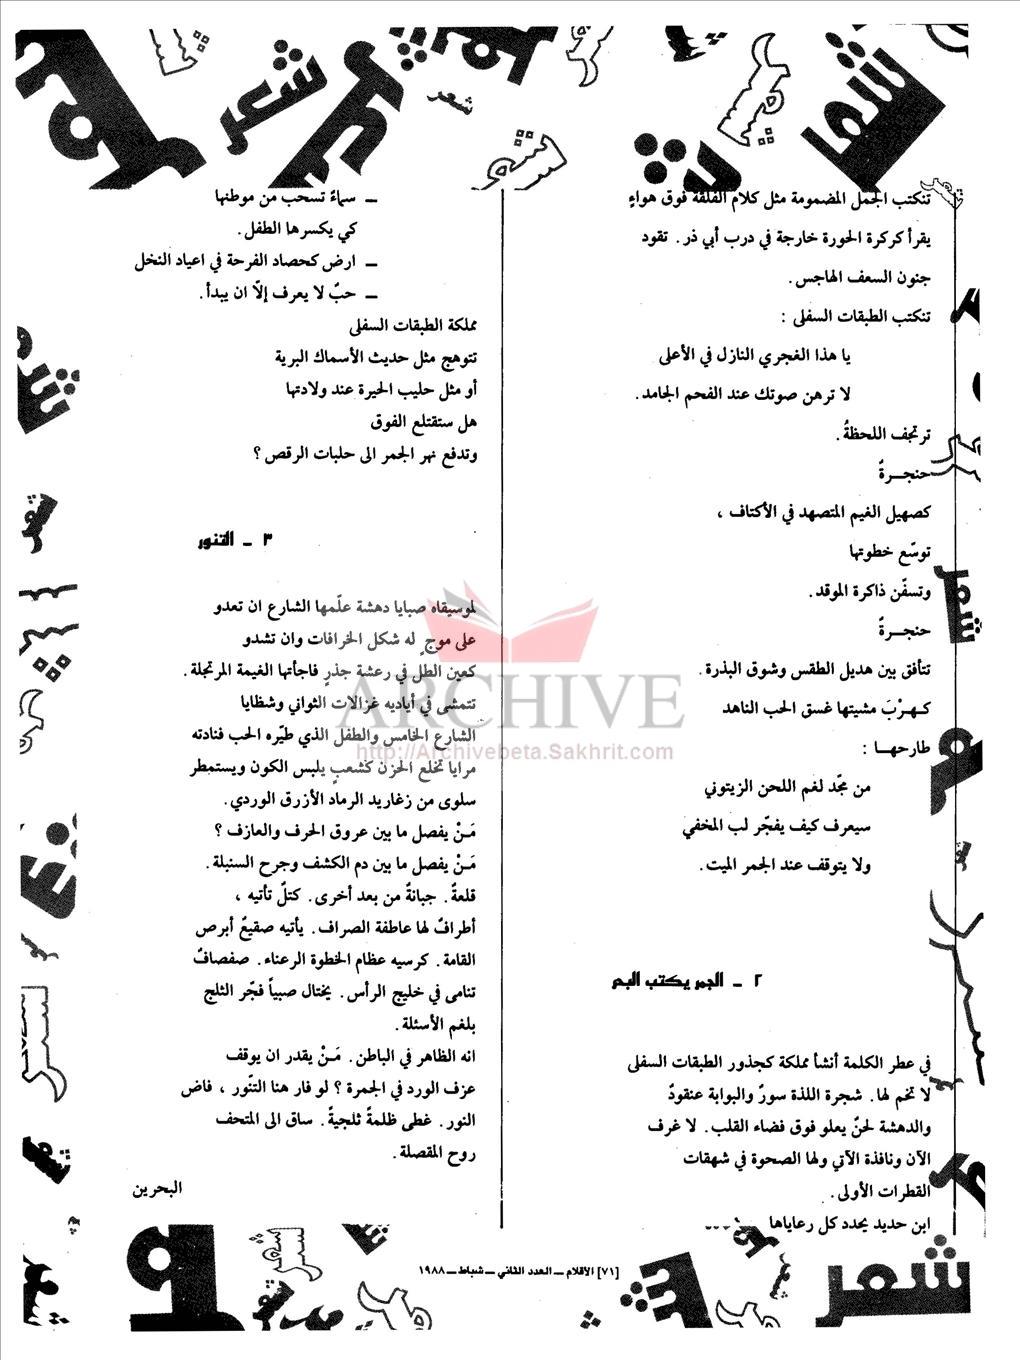 تنكتب الجمل المضمومة مثل كلام الفلقة فوق هواءٍ
يقرأ كركرة الحورة خارجة في درب أبي ذر. تقود
جنون السعف الهاجس.
تنكتب الطبقات السفلى :
يا هذا الغجري النازل في الأعلى
لا ترهن صوتك عند الفحم الجامد.
ترتجف اللحظةُ.
حنجـــرةٌ
كصهيل الغيم المتصهد في الأكتاف ،
توسّع خطوتها
وتسفّن ذاكرة الموقد.
حنجــرةٌ
تتأفق بين هديل الطقس وشوق البذرة.
كـهـرْبَ مشيتها غسق الحب الناهد
طارحهــا :
من مجّد لغم اللحن الزيتوني
سيعرف كيف يفجّر لب المخفي
ولا يتوقف عند الجمر الميت.
٢ ـ الجمر يكتب البحر
في عطر الكلمة أنشأ مملكة كجذور الطبقات السفلى
لا تخم لها. شجرة اللذة سورٌ والبوابة عنقودٌ
والدهشة لحنٌ يعلو فوق فضاء القلب. لا غرف
الآن ونافذة الآتي ولها الصحوة في شهقات
القطرات الأولى.
ابن حديد يحدد كل رعاياها
ـ سماءٌ تسحب من موطنها
كي يكسرها الطفل.
ـ ارض كحصاد الفرحة في اعياد النخل
ـ حبٌ لا يعرف إلّا ان يبدأ.
مملكة الطبقات السفلى
تتوهج مثل حديث الأسماك البرية
أو مثل حليب الحيرة عند ولادتها
هل ستقتلع الفوق
وتدفع نهر الجمر الى حلبات الرقص ؟
٣ ـ التنور
لموسيقاه صبايا دهشة علّمها الشارع ان تعدو
على موجٍ له شكل الخرافات وان تشدو
كعين الطل في رعشة جذرٍ فاجأتها الغيمة المرتجلة.
تتمشى في أباديه غزالات الثواني وشظايا
الشارع الخامس والطفل الذي طيّره الحب فنادته
مرايا تخلع الحزن كشعبٍ يلبس الكون ويستمطر
سلوى من زغاريد الرماد الأزرق الوردي.
مَـنْ يفصل ما بين عروق الحرف والعازف ؟
مَـنْ يفصل ما بين دم الكشف وجرح السنبلة.
قلعةٌ. جبانةٌ من بعد أخرى. كتلٌ تأتيه ،
أطرافٌ لها عاطفة الصراف. يأتيه صقيعٌ أبرص
القامة. كرسيه عظام الخطوة الرعناء. صفصافٌ
تنامى في خليج الرأس. يختال صبياً فجّر الثلج
بلغم الأسئلة.
انه الظاهر في الباطن. مَـنْ يقدر ان يوقف
عزف الورد في الجمرة ؟ لو فار هنا التنّور ، فاض
النور. غطى ظلمةً ثلجيةً. ساق الى المتحف
روح المقصلة.
البحرين
[٧١] الأقلام ـ العدد الثاني ـ شباط ـ ١٩٨٨
ARCHIVE
http://Archivebeta.Sakhrit.com
شعر